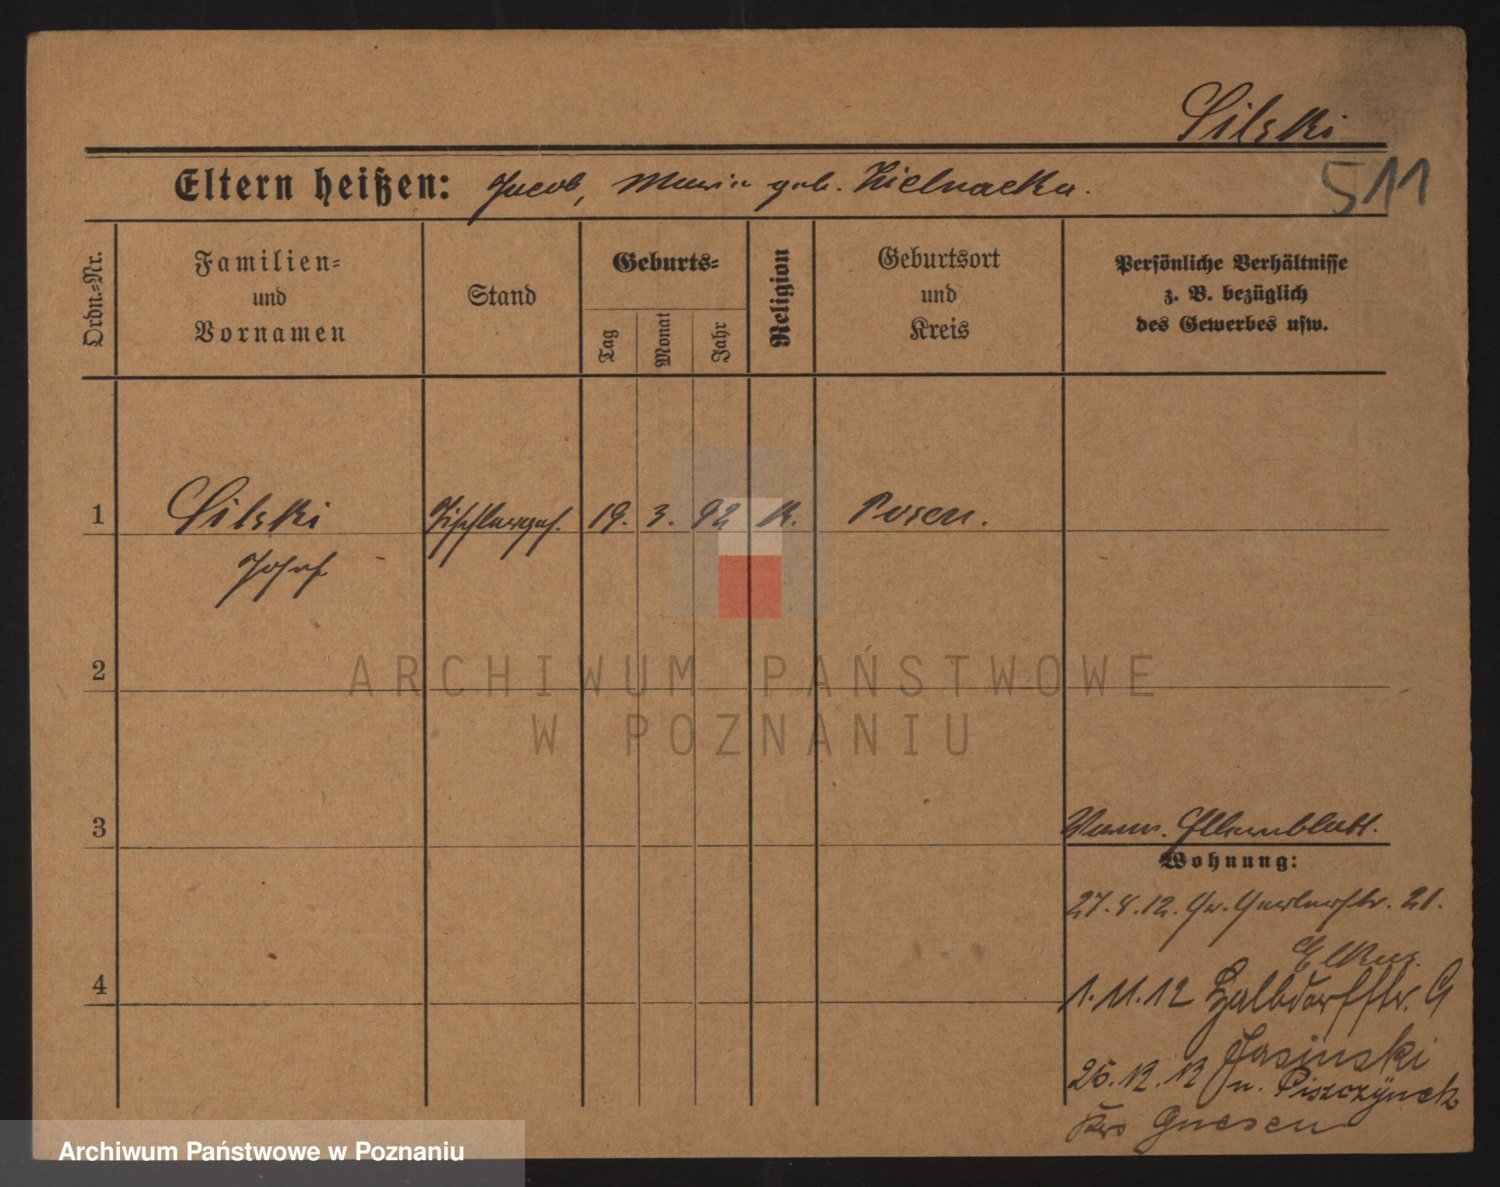 Silski
511
Eltern heißen: Jacob, Maria geb. Kielnacka.
Ordn.=Nr.
Familien=
und
Vornamen
Stand
Geburts=
Tag
Monat
Jahr
Religion
Geburtsort
und
Kreis
Persönliche Verhältnisse
z. B. bezüglich
des Gewerbes usw.
1 Silski Tischlerges. 19. 3. 92 K. Posen.
Josef
2
ARCHIWUM PAŃSTWOWE
W POZNANIU
3
Elternblatt.
Wohnung:
27.8.12. Gr. Gerberstr. 21.
Elkus.
4
1.11.12 Halbdorfstr. 9
Jasinski
26.12.12 n. Piszczynek
Krs Gnesen
Archiwum Państwowe w Poznaniu